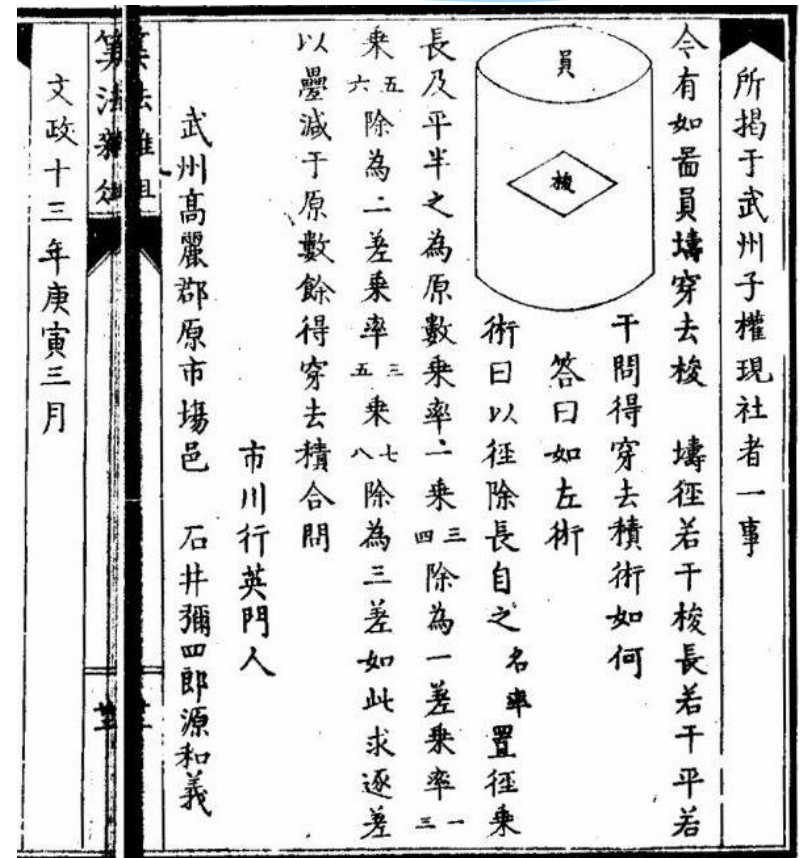 所揭于武州子權現社者一事
今有如畵員墻穿去梭 墻徑若干梭長若干平若
干問得穿去積術如何
員
梭
答曰如左術
術曰以徑除長自之名率置徑乘
長及平半之為原數乘率二乘三四除為一差乘率一三
乘五六除為二差乘率三五乘七八除為三差如此求逐差
以疊減于原數餘得穿去積合問
市川行英門人
武州高麗郡原市場邑 石井彌四郎源和義
算法雜俎
文政十三年庚寅三月